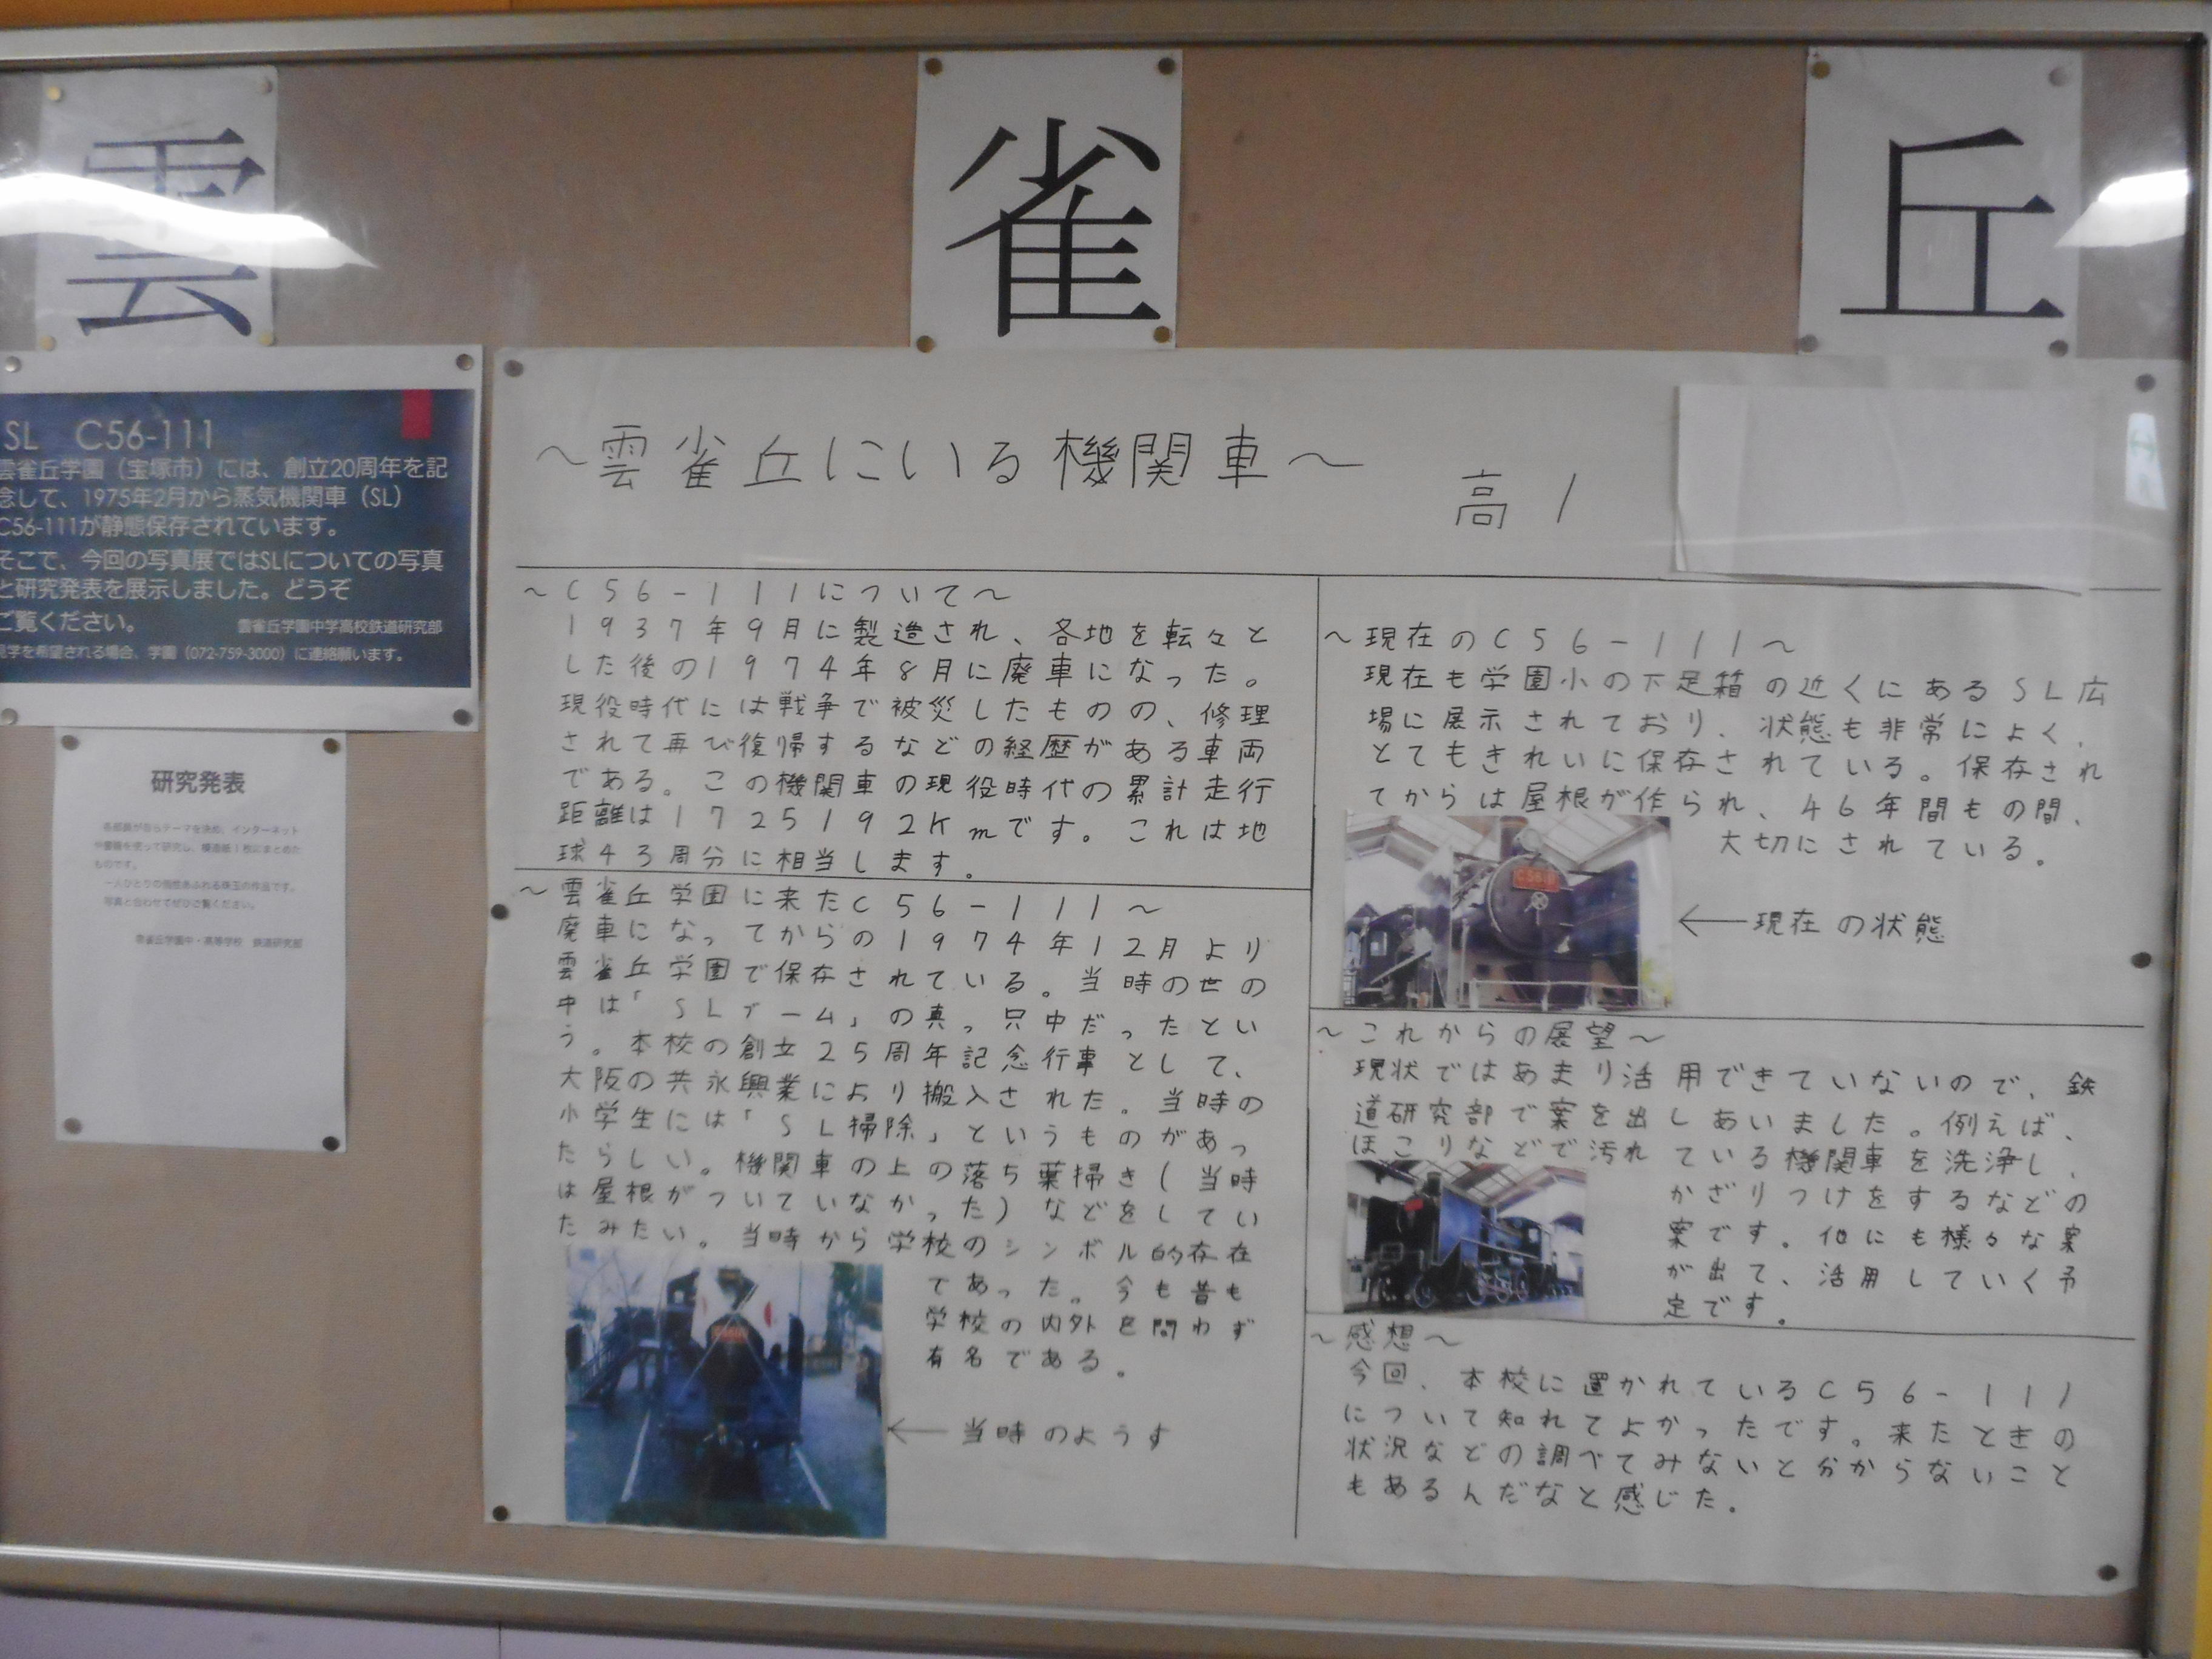 雲
雀
丘
SL C56-111
雲雀丘学園（宝塚市）には、創立20周年を記
念して、1975年2月から蒸気機関車（SL）
C56-111が静態保存されています。
そこで、今回の写真展ではSLについての写真
と研究発表を展示しました。どうぞ
ご覧ください。
雲雀丘学園中学高校鉄道研究部
見学を希望される場合、学園（072-759-3000）に連絡願います。
研究発表
各部員が自らテーマを決め、インターネット
や書籍を使って研究し、模造紙1枚にまとめた
ものです。
一人ひとりの個性あふれる珠玉の作品です。
写真と合わせてぜひご覧ください。
雲雀丘学園中・高等学校 鉄道研究部
～雲雀丘にいる機関車～
高1
～C56-111について～
1937年9月に製造され、各地を転々と
した後の1974年8月に廃車になった。
現役時代には戦争で被災したものの、修理
されて再び復帰するなどの経歴がある車両
である。この機関車の現役時代の累計走行
距離は1725192Kmです。これは地
球43周分に相当します。
～雲雀丘学園に来たC56-111～
廃車になってからの1974年12月より
雲雀丘学園で保存されている。当時の世の
中は「SLブーム」の真っ只中だったとい
う。本校の創立25周年記念行事として、
大阪の共永興業により搬入された。当時の
小学生には「SL掃除」というものがあっ
たらしい。機関車の上の落ち葉掃き(当時
は屋根がついていなかった)などをしてい
たみたい。当時から学校のシンボル的存在
であった。今も昔も
学校の内外を問わず
有名である。
←当時のようす
～現在のC56-111～
現在も学園小の下足箱の近くにあるSL広
場に展示されており、状態も非常によく、
とてもきれいに保存されている。保存され
てからは屋根が作られ、46年間もの間、
大切にされている。
←現在の状態
～これからの展望～
現状ではあまり活用できていないので、鉄
道研究部で案を出しあいました。例えば、
ほこりなどで汚れている機関車を洗浄し、
かざりつけをするなどの
案です。他にも様々な案
が出て、活用していく予
定です。
～感想～
今回、本校に置かれているC56-111
について知れてよかったです。来たときの
状況などの調べてみないと分からないこと
もあるんだなと感じた。